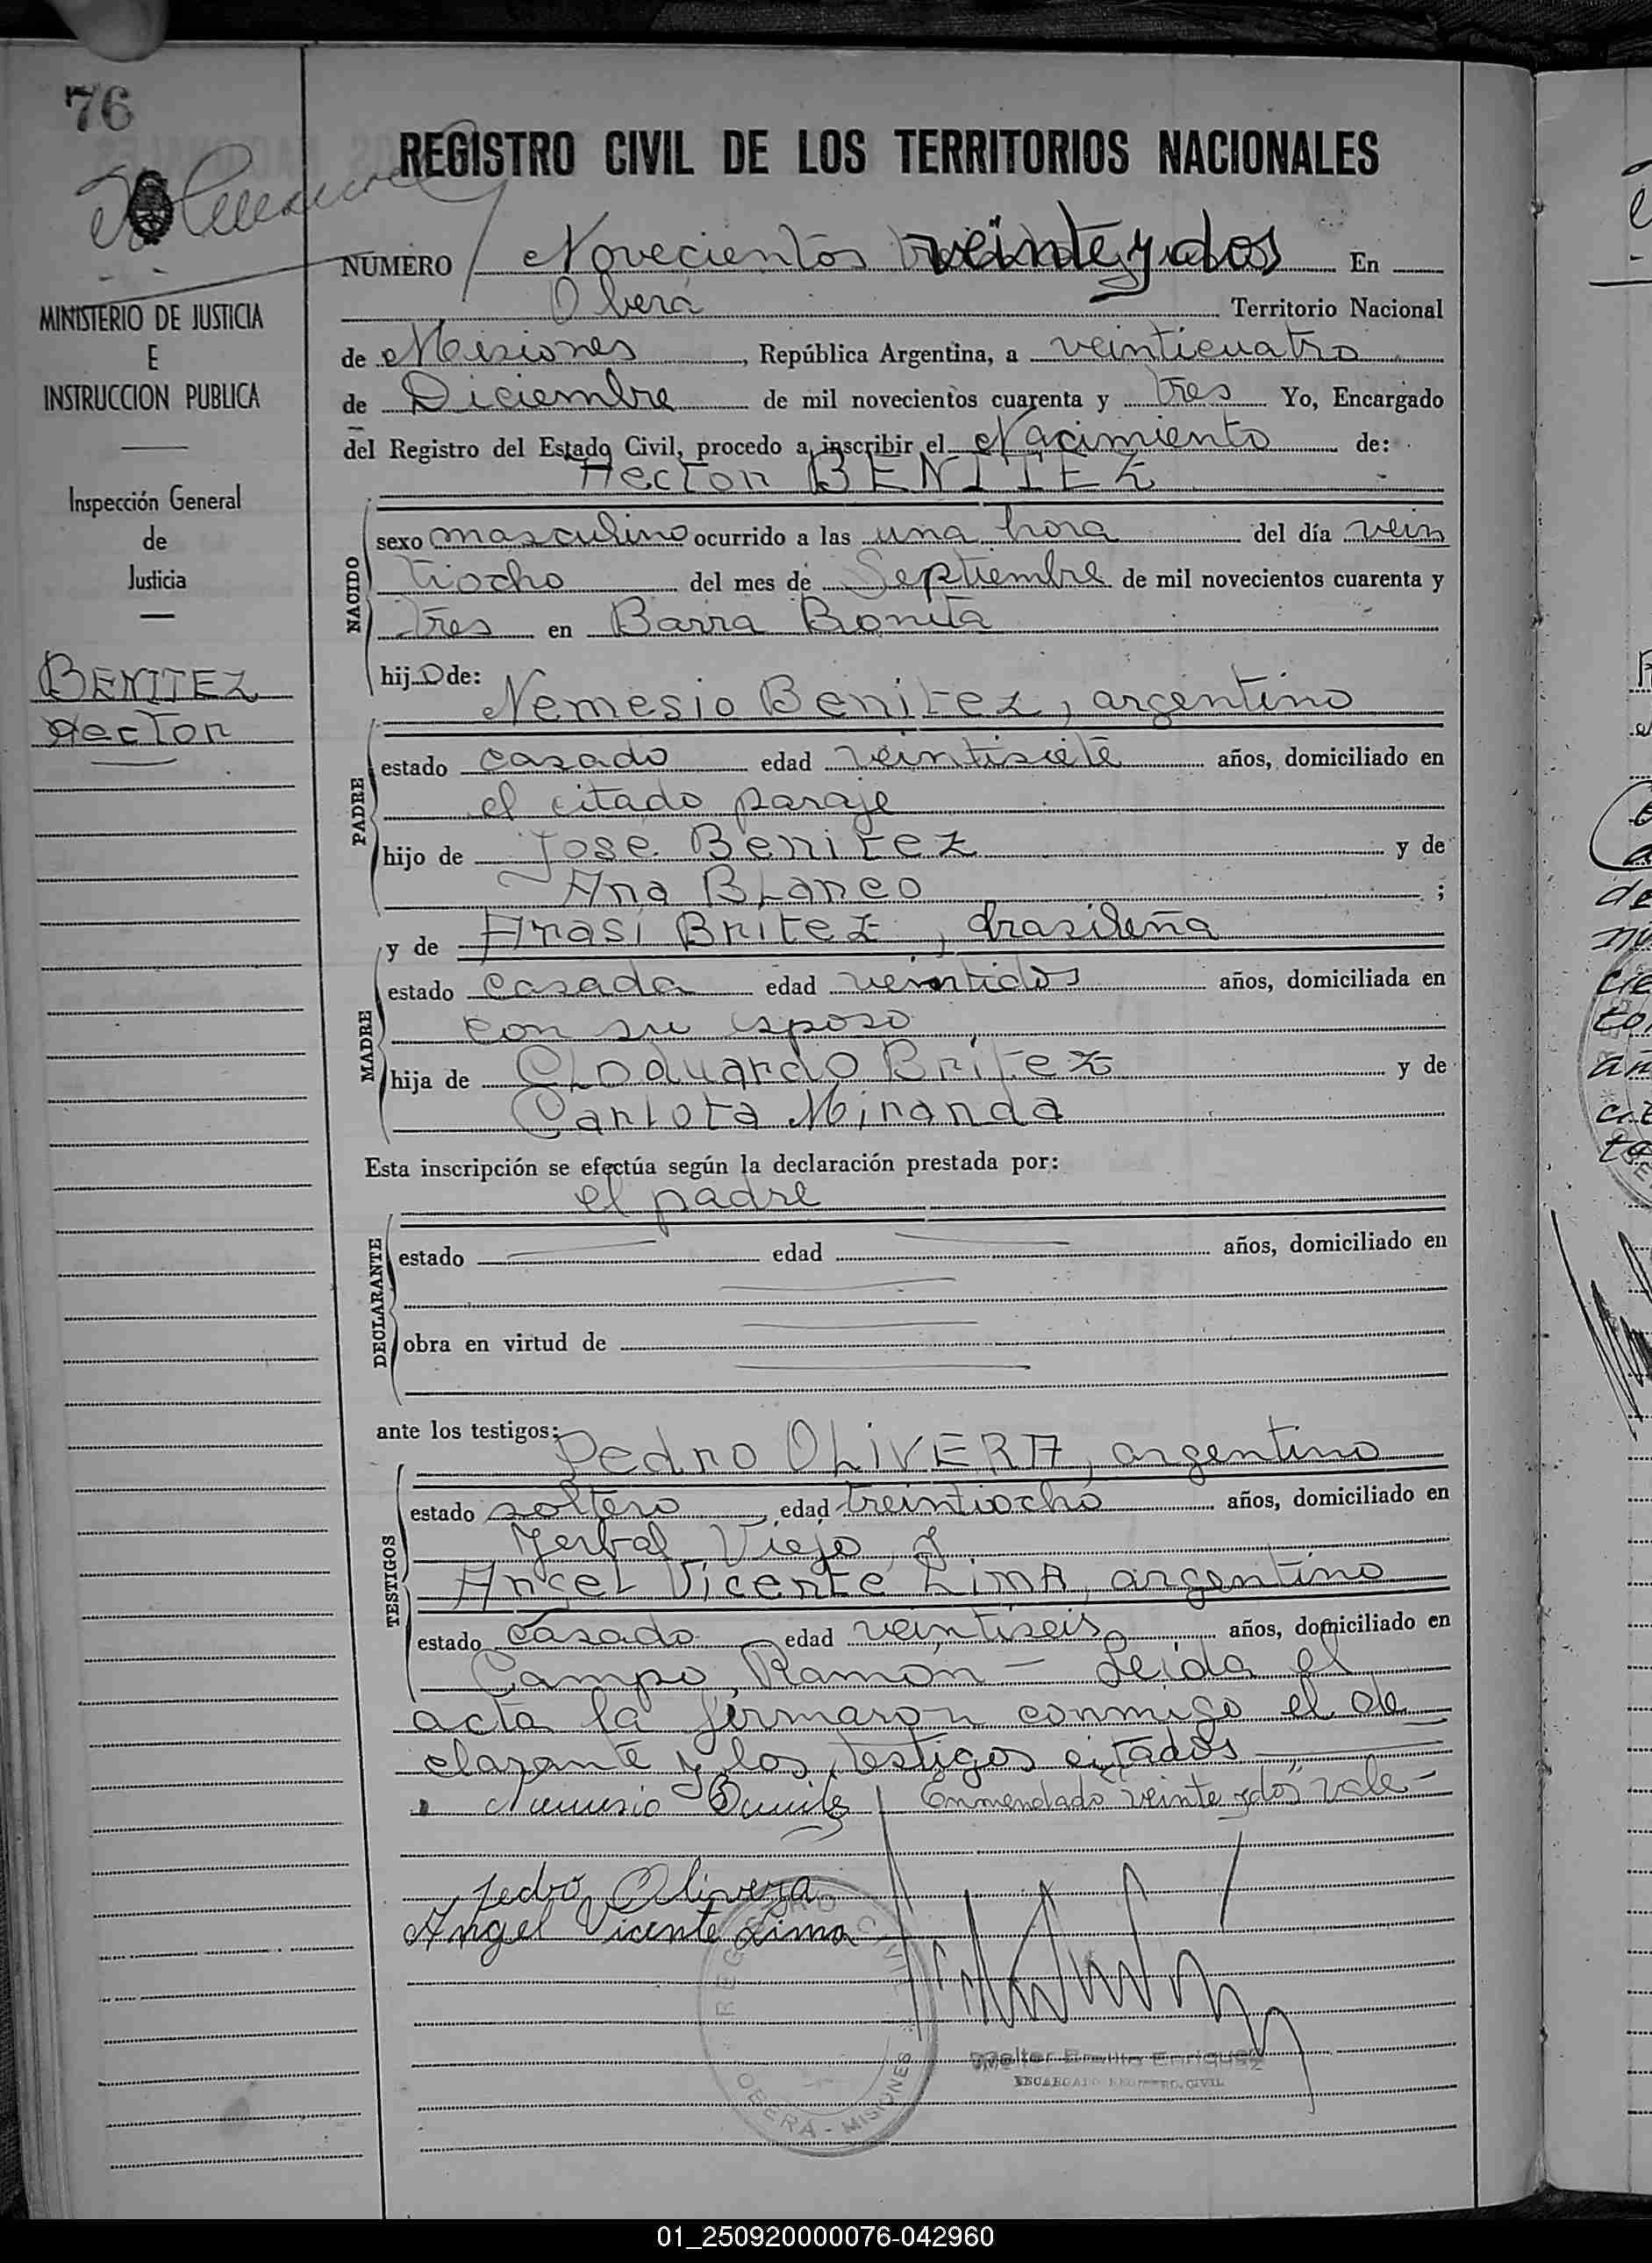 76
REGISTRO CIVIL DE LOS TERRITORIOS NACIONALES
NÚMERO Novecientos veinte y dos En
Oberá Territorio Nacional
de Misiones, República Argentina, a veinticuatro
de Diciembre de mil novecientos cuarenta y tres Yo, Encargado
del Registro del Estado Civil, procedo a inscribir el Nacimiento de:
Hector BENITEZ
MINISTERIO DE JUSTICIA
E
INSTRUCCION PUBLICA
Inspección General
de
Justicia
BENITEZ
Hector
NACIDO
sexo masculino ocurrido a las una hora del día vein
tiocho del mes de Septiembre de mil novecientos cuarenta y
tres en Barra Bonita
hijo de:
Nemesio Benitez, argentino
PADRE
estado casado edad veintisiete años, domiciliado en
el citado paraje
hijo de Jose Benitez y de
Ana Blanco ;
y de Arasi Britez, brasileña
MADRE
estado casada edad veintidos años, domiciliada en
con su esposo
hija de Cloduardo Britez y de
Carlota Miranda
Esta inscripción se efectúa según la declaración prestada por:
el padre
DECLARANTE
estado edad años, domiciliado en
obra en virtud de
ante los testigos:
Pedro OLIVERA, argentino
TESTIGOS
estado soltero edad treintiocho años, domiciliado en
Yerbal Viejo y
Angel Vicente Lima, argentino
estado casado edad veintiseis años, domiciliado en
Campo Ramón - Leida el
acta la firmaron conmigo el de
clarante y los testigos citados
Nemesio Benites Enmendado "veinte y dos" vale -
Pedro Olivera
Angel Vicente Lima
REGISTRO CIVIL
OBERA - MISIONES
Walter Enriquez
ENCARGADO REGISTRO CIVIL
01_250920000076-042960